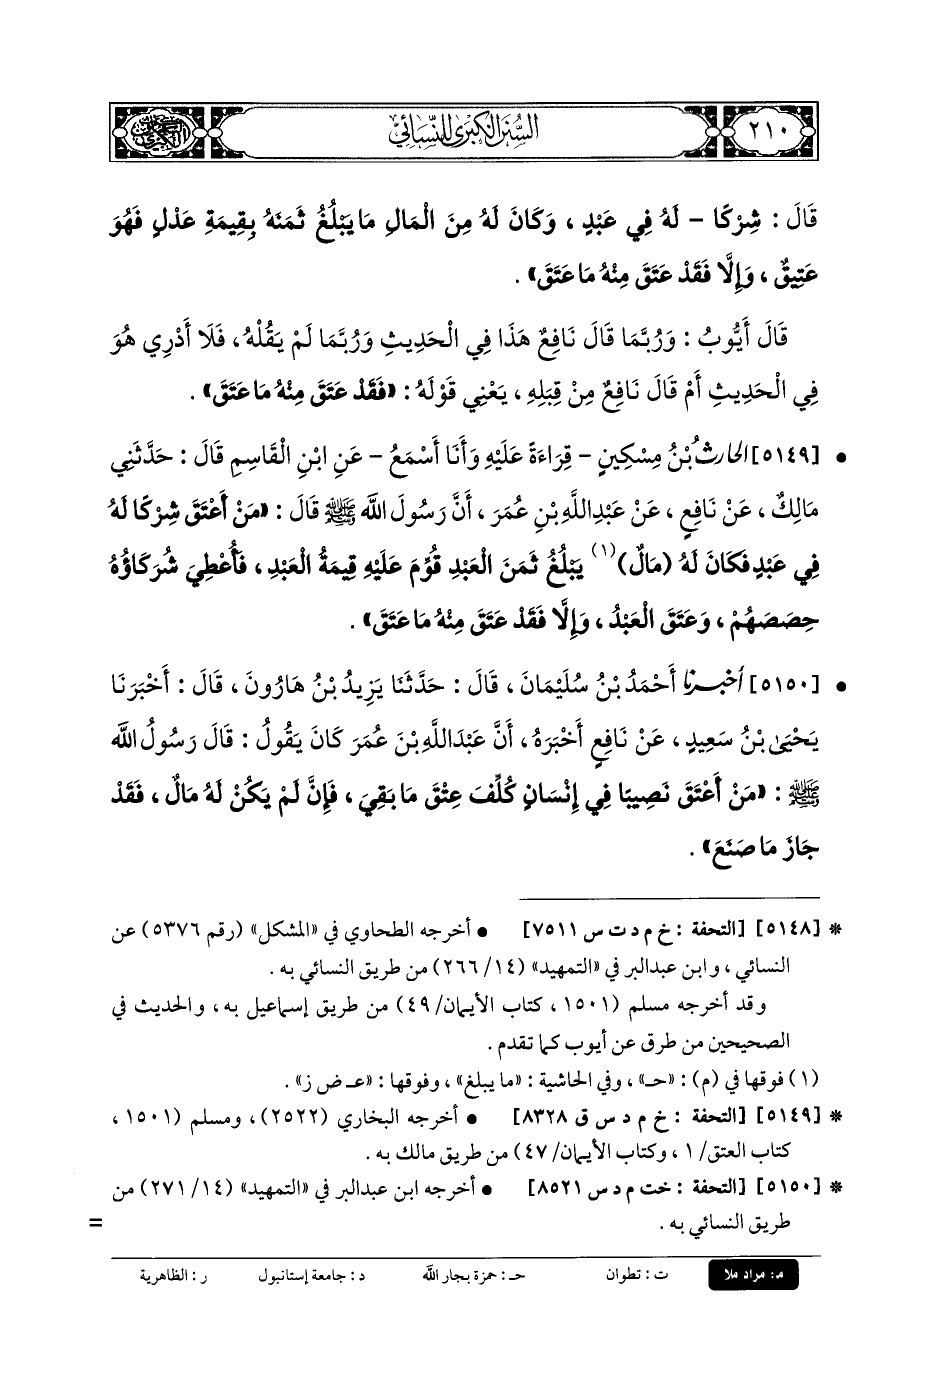 ٢١٠
السنن الكبرى للنسائي
قَالَ : شِرْكًا – لَهُ فِي عَبْدٍ ، وَكَانَ لَهُ مِنَ الْمَالِ مَا يَبْلُغُ ثَمَنَهُ بِقِيمَةِ عَدْلٍ فَهُوَ
عَتِيقٌ ، وَإِلَّا فَقَدْ عَتَقَ مِنْهُ مَا عَتَقَ» .
قَالَ أَيُّوبُ : وَرُبَّمَا قَالَ نَافِعٌ هَذَا فِي الْحَدِيثِ وَرُبَّمَا لَمْ يَقُلْهُ ، فَلَا أَدْرِي هُوَ
فِي الْحَدِيثِ أَمْ قَالَ نَافِعٌ مِنْ قِبَلِهِ ، يَعْنِي قَوْلَهُ : «فَقَدْ عَتَقَ مِنْهُ مَا عَتَقَ» .
• [٥١٤٩] الحارثُ بْنُ مِسْكِينٍ – قِرَاءَةً عَلَيْهِ وَأَنَا أَسْمَعُ – عَنِ ابْنِ الْقَاسِمِ قَالَ : حَدَّثَنِي
مَالِكٌ ، عَنْ نَافِعٍ ، عَنْ عَبْدِاللَّهِ بْنِ عُمَرَ ، أَنَّ رَسُولَ اللَّهِ ﷺ قَالَ : «مَنْ أَعْتَقَ شِرْكًا لَهُ
فِي عَبْدٍ فَكَانَ لَهُ (مَالٌ)(١) يَبْلُغُ ثَمَنَ الْعَبْدِ قُوِّمَ عَلَيْهِ قِيمَةُ الْعَبْدِ ، فَأُعْطِيَ شُرَكَاؤُهُ
حِصَصَهُمْ ، وَعَتَقَ الْعَبْدُ ، وَإِلَّا فَقَدْ عَتَقَ مِنْهُ مَا عَتَقَ» .
• [٥١٥٠] أخبرنا أَحْمَدُ بْنُ سُلَيْمَانَ ، قَالَ : حَدَّثَنَا يَزِيدُ بْنُ هَارُونَ ، قَالَ : أَخْبَرَنَا
يَحْيَى بْنُ سَعِيدٍ ، عَنْ نَافِعٍ أَخْبَرَهُ ، أَنَّ عَبْدَاللَّهِ بْنَ عُمَرَ كَانَ يَقُولُ : قَالَ رَسُولُ اللَّهِ
ﷺ : «مَنْ أَعْتَقَ نَصِيبًا فِي إِنْسَانٍ كُلِّفَ عِتْقَ مَا بَقِيَ ، فَإِنَّ لَمْ يَكُنْ لَهُ مَالٌ ، فَقَدْ
جَازَ مَا صَنَعَ» .
* [٥١٤٨] [التحفة : خ م د ت س ٧٥١١] • أخرجه الطحاوي في «المشكل» (رقم ٥٣٧٦) عن
النسائي ، وابن عبدالبر في «التمهيد» (١٤/ ٢٦٦) من طريق النسائي به .
وقد أخرجه مسلم (١٥٠١ ، كتاب الأيمان/ ٤٩) من طريق إسماعيل به ، والحديث في
الصحيحين من طرق عن أيوب كما تقدم .
(١) فوقها في (م) : «حـ» ، وفي الحاشية : «ما يبلغ» ، وفوقها : «عـ ض ز» .
* [٥١٤٩] [التحفة : خ م د س ق ٨٣٢٨] • أخرجه البخاري (٢٥٢٢) ، ومسلم (١٥٠١ ،
كتاب العتق/ ١ ، وكتاب الأيمان/ ٤٧) من طريق مالك به .
* [٥١٥٠] [التحفة : خت م د س ٨٥٢١] • أخرجه ابن عبدالبر في «التمهيد» (١٤/ ٢٧١) من
طريق النسائي به . =
م: مراد ملا ت : تطوان حـ : حمزة بجار اللَّه د : جامعة إستانبول ر : الظاهرية